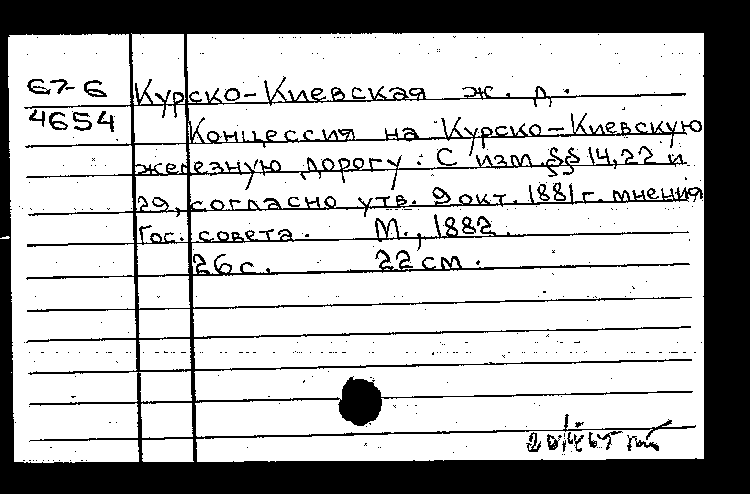 67-6 Курско-Киевская ж. д.
4654 Концессия на Курско-Киевскую
железную дорогу. С изм. §§ 14, 22 и
29, согласно утв. 9 окт. 1881 г. мнения
Гос. совета. М., 1882.
26 с. 22 см.